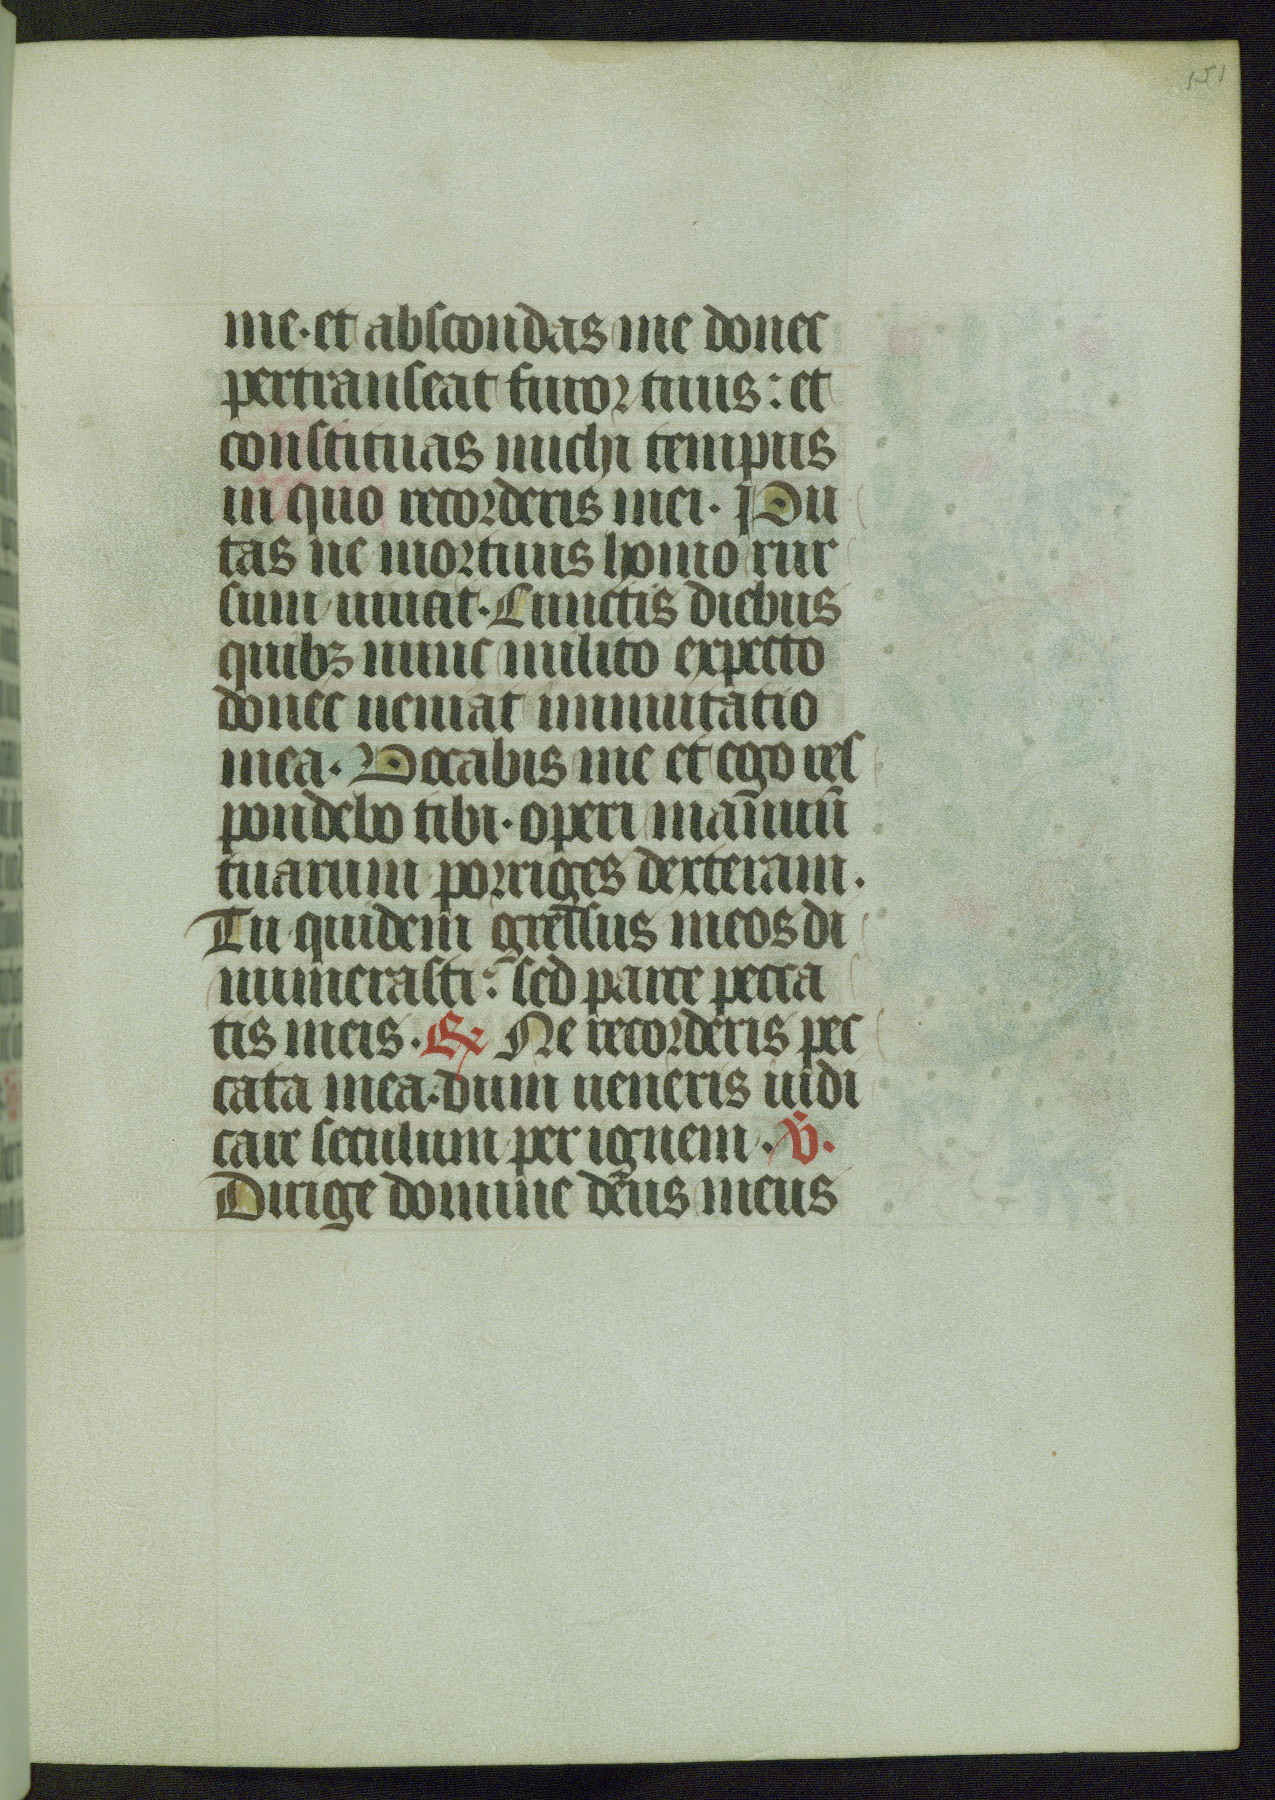 151
me·et abscondas me donec
pertranseat furor tuus: et
constituas michi tempus
in quo recorderis mei· Pu
tas ne mortuus homo rur
sum uiuat·Cunctis diebus
quibꝫ nunc milito expecto
donec ueniat immutatio
mea· Vocabis me et ego res
pondebo tibi·operi manuū
tuarum porriges dexteram.
Tu quidem gressus meos di
numerasti: sed parce pecca
tis meis·℞ Ne recorderis pec
cata mea·dum ueneris iudi
care seculum per ignem· ℣·
Dirige domine deus meus